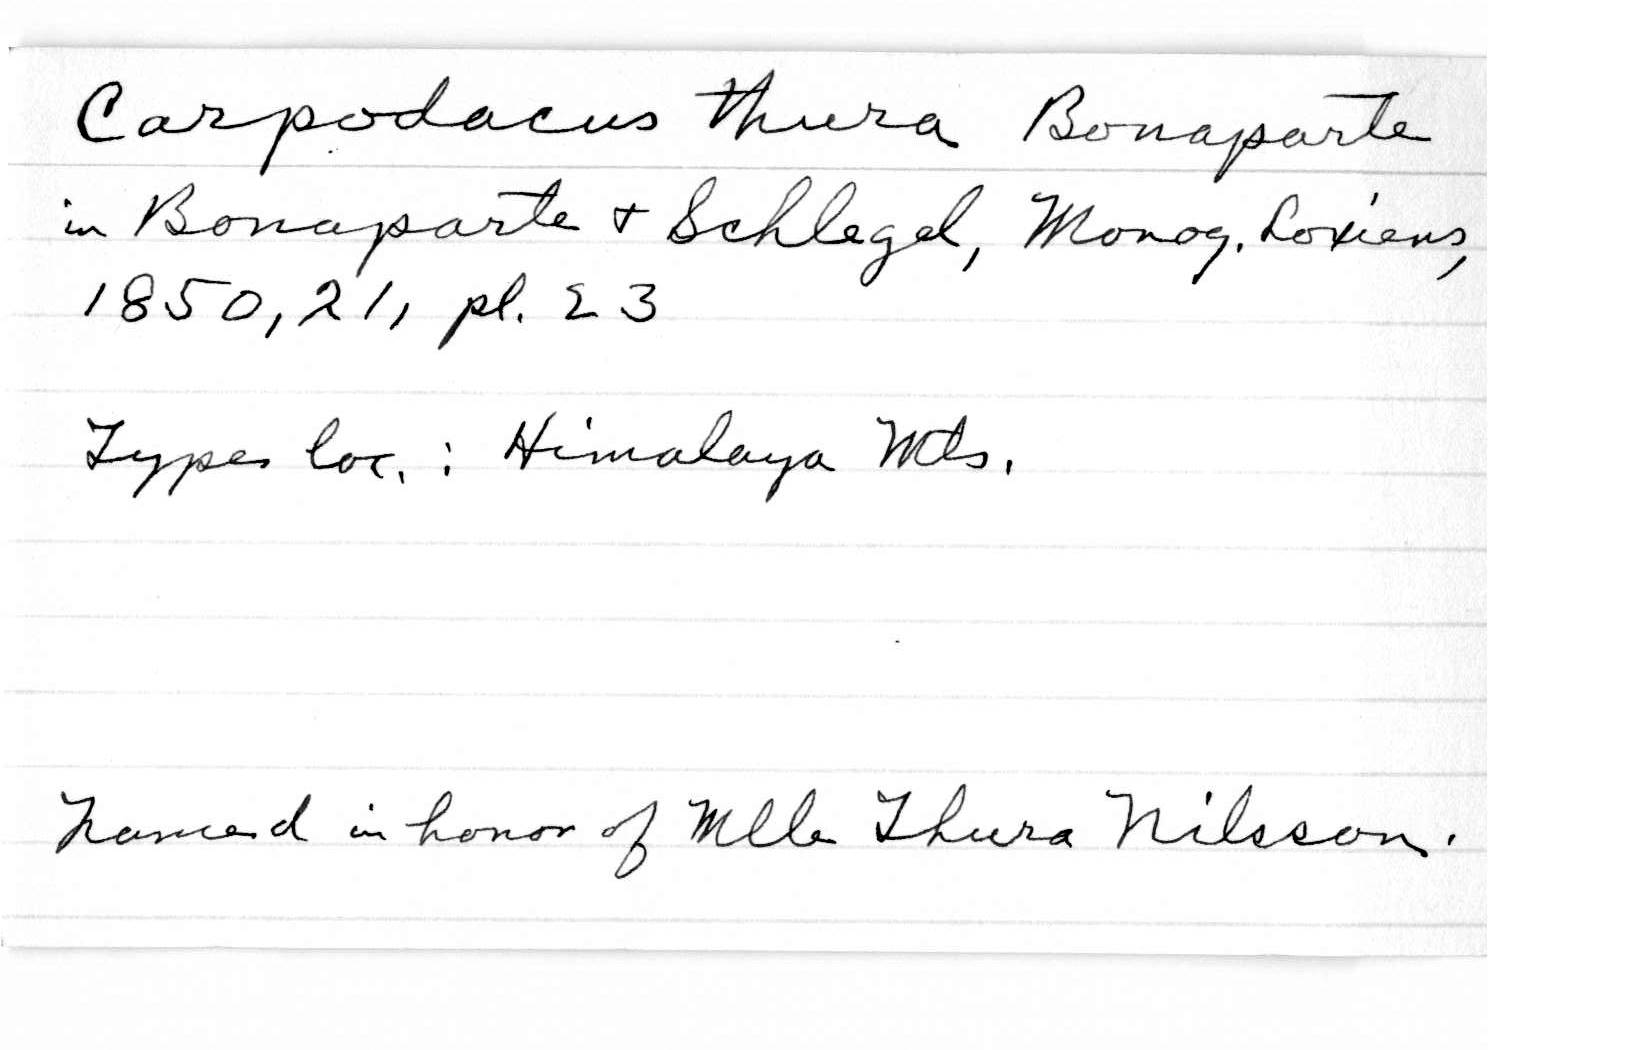 Carpodacus thura Bonaparte
in Bonaparte + Schlegel, Monog. Loxiens,
1850, 21, pl. 23
Type loc. : Himalaya Mts.
Named in honor of Mlle Thura Nilsson.